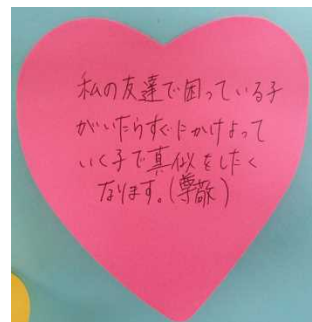 私の友達で困っている子
がいたらすぐにかけよって
いく子で真似をしたく
なります。(尊敬)